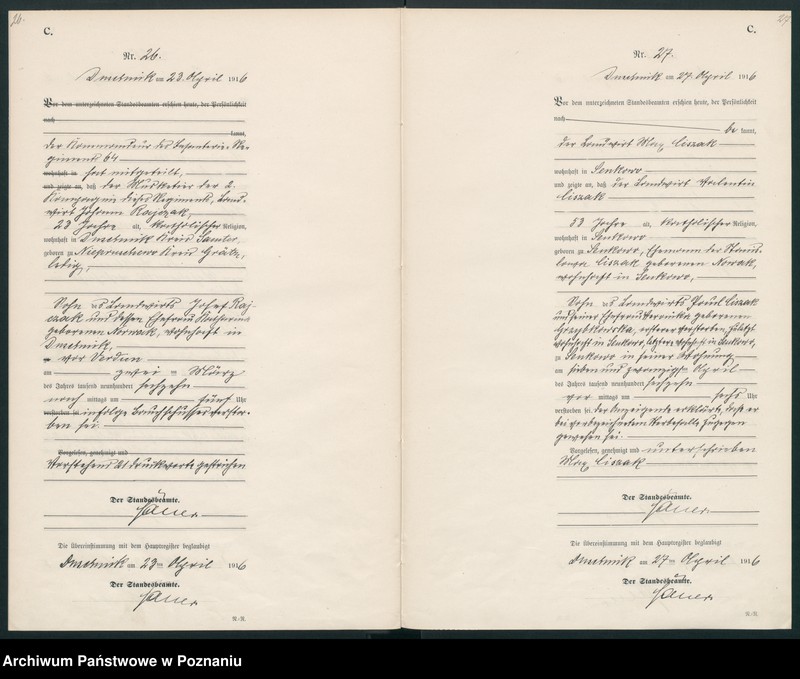 26.
C.
Nr. 26.
am 23. April 1916
Vor dem unterzeichneten Standesbeamten erschien heute, der Persönlichkeit
nach
kannt,
der Kommandeur des Infanterie-Re-
giments 64
wohnhaft in hat mitgeteilt,
und zeigte an, daß der Musketier der 2.
Kompagnie dieses Regiments, Land-
wirt Johann
23 Jahre alt, katholischer Religion,
wohnhaft in Kreis Samter,
geboren zu Kreis Grätz,
ledig,
Sohn des Landwirts Josef
und dessen Ehefrau
geborenen Nowak, wohnhaft in
vor Verdun
am zwei ten März
des Jahres tausend neunhundert sechzehn
nach mittags um fünf Uhr
verstorben sei infolge Bauchschusses verstor-
ben sei.
Vorgelesen, genehmigt und
Vorstehend Druckworte gestrichen
Der Standesbeamte.
Die Übereinstimmung mit dem Hauptregister beglaubigt
am 23ten April 1916
Der Standesbeamte.
R./R.
27.
C.
Nr. 27.
am 27. April 1916
Vor dem unterzeichneten Standesbeamten erschien heute, der Persönlichkeit
nach
be kannt,
der Landwirt Max Ciszak
wohnhaft in Senkowo
und zeigte an, daß der Landwirt Valentin
Ciszak
83 Jahre alt, katholischer Religion,
wohnhaft in Senkowo
geboren zu Senkowo, Ehemann der Stanis-
lawa Ciszak geborenen Nowak,
wohnhaft in Senkowo,
Sohn des Landwirts Paul Ciszak
und seiner Ehefrau Veronika geborenen
Grzybkowska, ersterer verstorben, zuletzt
wohnhaft in Senkowo, letztere wohnhaft in Senkowo,
zu Senkowo in seiner Wohnung
am sieben und zwanzigsten April
des Jahres tausend neunhundert sechzehn
vor mittags um sechs Uhr
verstorben sei. Der Anzeigende erklärte, daß er
bei vorbezeichnetem Sterbefalle zugegen
gewesen sei.
Vorgelesen, genehmigt und unterschrieben
Max Ciszak
Der Standesbeamte.
Die Übereinstimmung mit dem Hauptregister beglaubigt
am 27ten April 1916
Der Standesbeamte.
R./R.
Archiwum Państwowe w Poznaniu